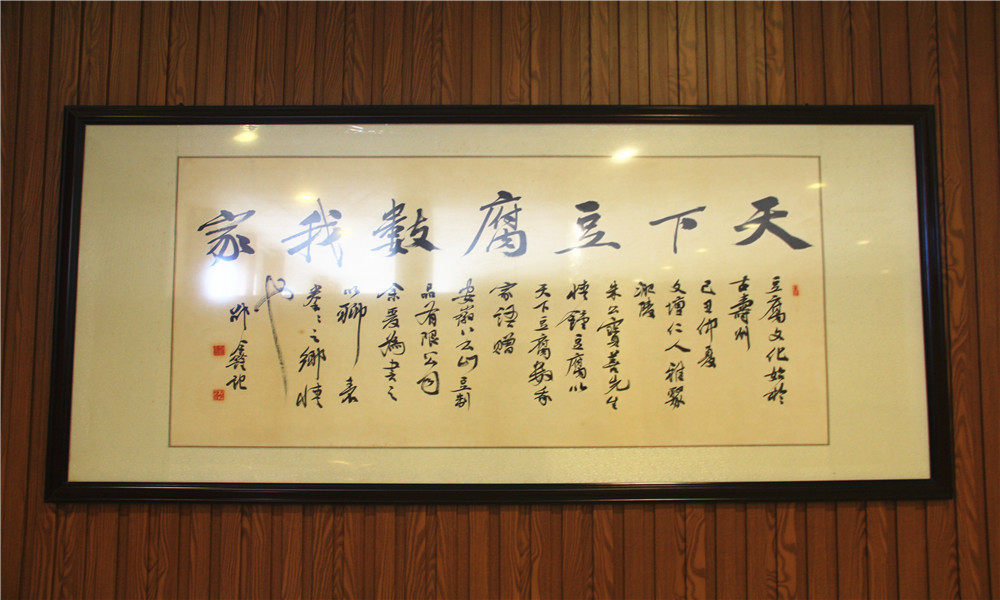 天下豆腐數我家
豆腐文化始於
古壽州
己丑仲夏
文壇仁人雅聚
淝陵
朱公寶善先生
情鍾豆腐以
天下豆腐數我
家語贈
安徽八公山豆制
品有限公司
余爰為書之
以聊表
眷眷之鄉情
也
鑫記